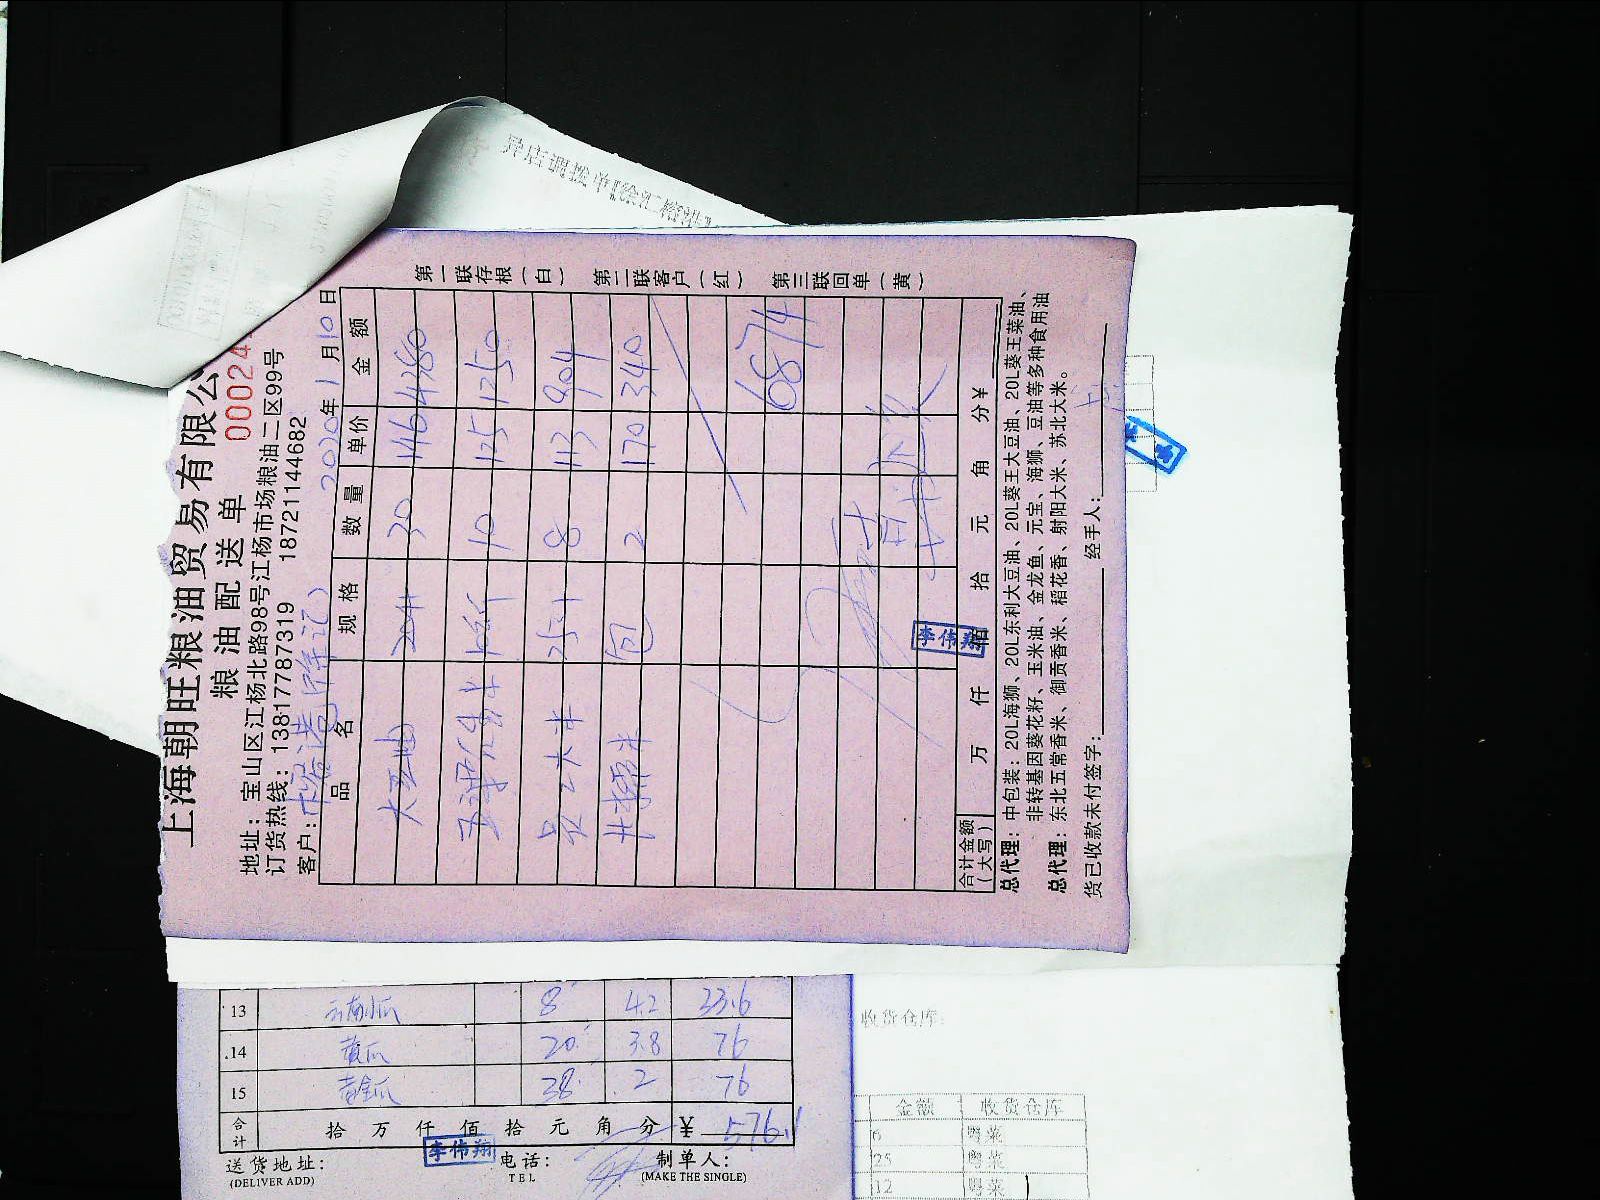 上海朝旺粮油贸易有限公
粮油配送单
00024
地址：宝山区江杨北路98号江杨市场粮油二区99号
订货热线：13817787319 18721144682
客户：
2020年1月10日
品名 规格 数量 单价 金额
大豆油 20升 30 146 4380
10斤 10 125 1250
大米 25斤 8 113 904
米 包 2 170 340
6874
合计金额（大写） 万 仟 佰 拾 元 角 分 ¥
李伟翔
总代理：中包装：20L海狮、20L东利大豆油、20L葵王大豆油、20L葵王菜油、
非转基因葵花籽、玉米油、金龙鱼、元宝、海狮、豆油等多种食用油
总代理：东北五常香米、御贡香米、稻花香、射阳大米、苏北大米。
货已收款未付签字： 经手人：
第一联存根（白） 第二联客户（红） 第三联回单（黄）
异店调拨单
13 云南小瓜 8 4.2 33.6
14 黄瓜 20 3.8 76
15 黄金瓜 38 2 76
合计 拾 万 仟 佰 拾 元 角 分 ¥ 576.1
李伟翔
送货地址： 电话： 制单人：
(DELIVER ADD) TEL (MAKE THE SINGLE)
收货仓库：
金额 收货仓库
6 粤菜
25 粤菜
12 粤菜